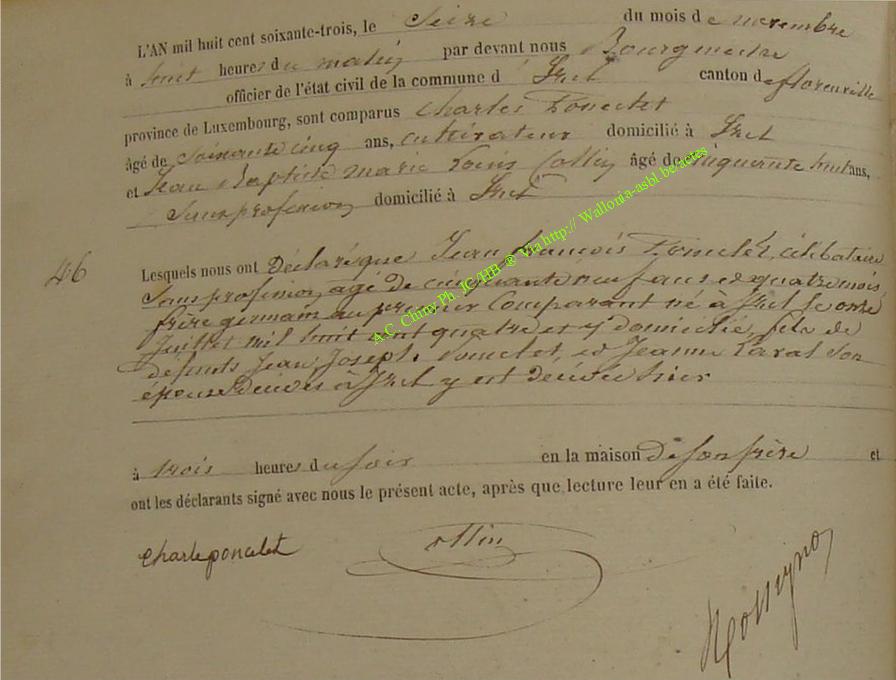 L'AN mil huit cent soixante-trois, le Seize du mois de novembre
à huit heures du matin par devant nous Bourgmestre
officier de l'état civil de la commune d' Izel canton de florenville
province de Luxembourg, sont comparus Charles Poncelet
âgé de soixante cinq ans, cultivateur domicilié à Izel
et Jean Baptiste marie Louis Collin âgé de cinquante huit ans,
Sans profession domicilié à Izel
46
Lesquels nous ont Déclaré que Jean françois Poncelet, célibataire
sans profession, agé de cinquante neuf ans et quatre mois
frère germain au premier Comparant né a Izel le onze
Juillet mil huit cent quatre et y domicilié, fils de
defunts Jean Joseph Poncelet, et Jeanne Laval son
épouse décédés à Izel y est décédé hier
à trois heures du soir en la maison De son frère et
ont les déclarants signé avec nous le présent acte, après que lecture leur en a été faite.
Charle poncelet
A.C. Chiny Ph. JC/HB ® Via http:// Wallonia-asbl.be/actes